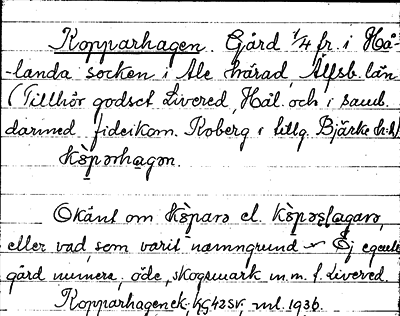 Kopparhagen. Gård 1/4 fr. i Hå-
-landa socken i Ale härad, Älfsb. län
(Tillhör godset Livered, Hål. och i samb.
därmed fideikom. Koberg i tillg. Bjärke h-d)
Kòpərhagən.
Okänt om Kòparə el.
eller vad, som varit namngrund Ej egentl.
gård numera, öde, skogsmark m.m. f. Livered.
Kopparhagen ek. vnl. 1936.